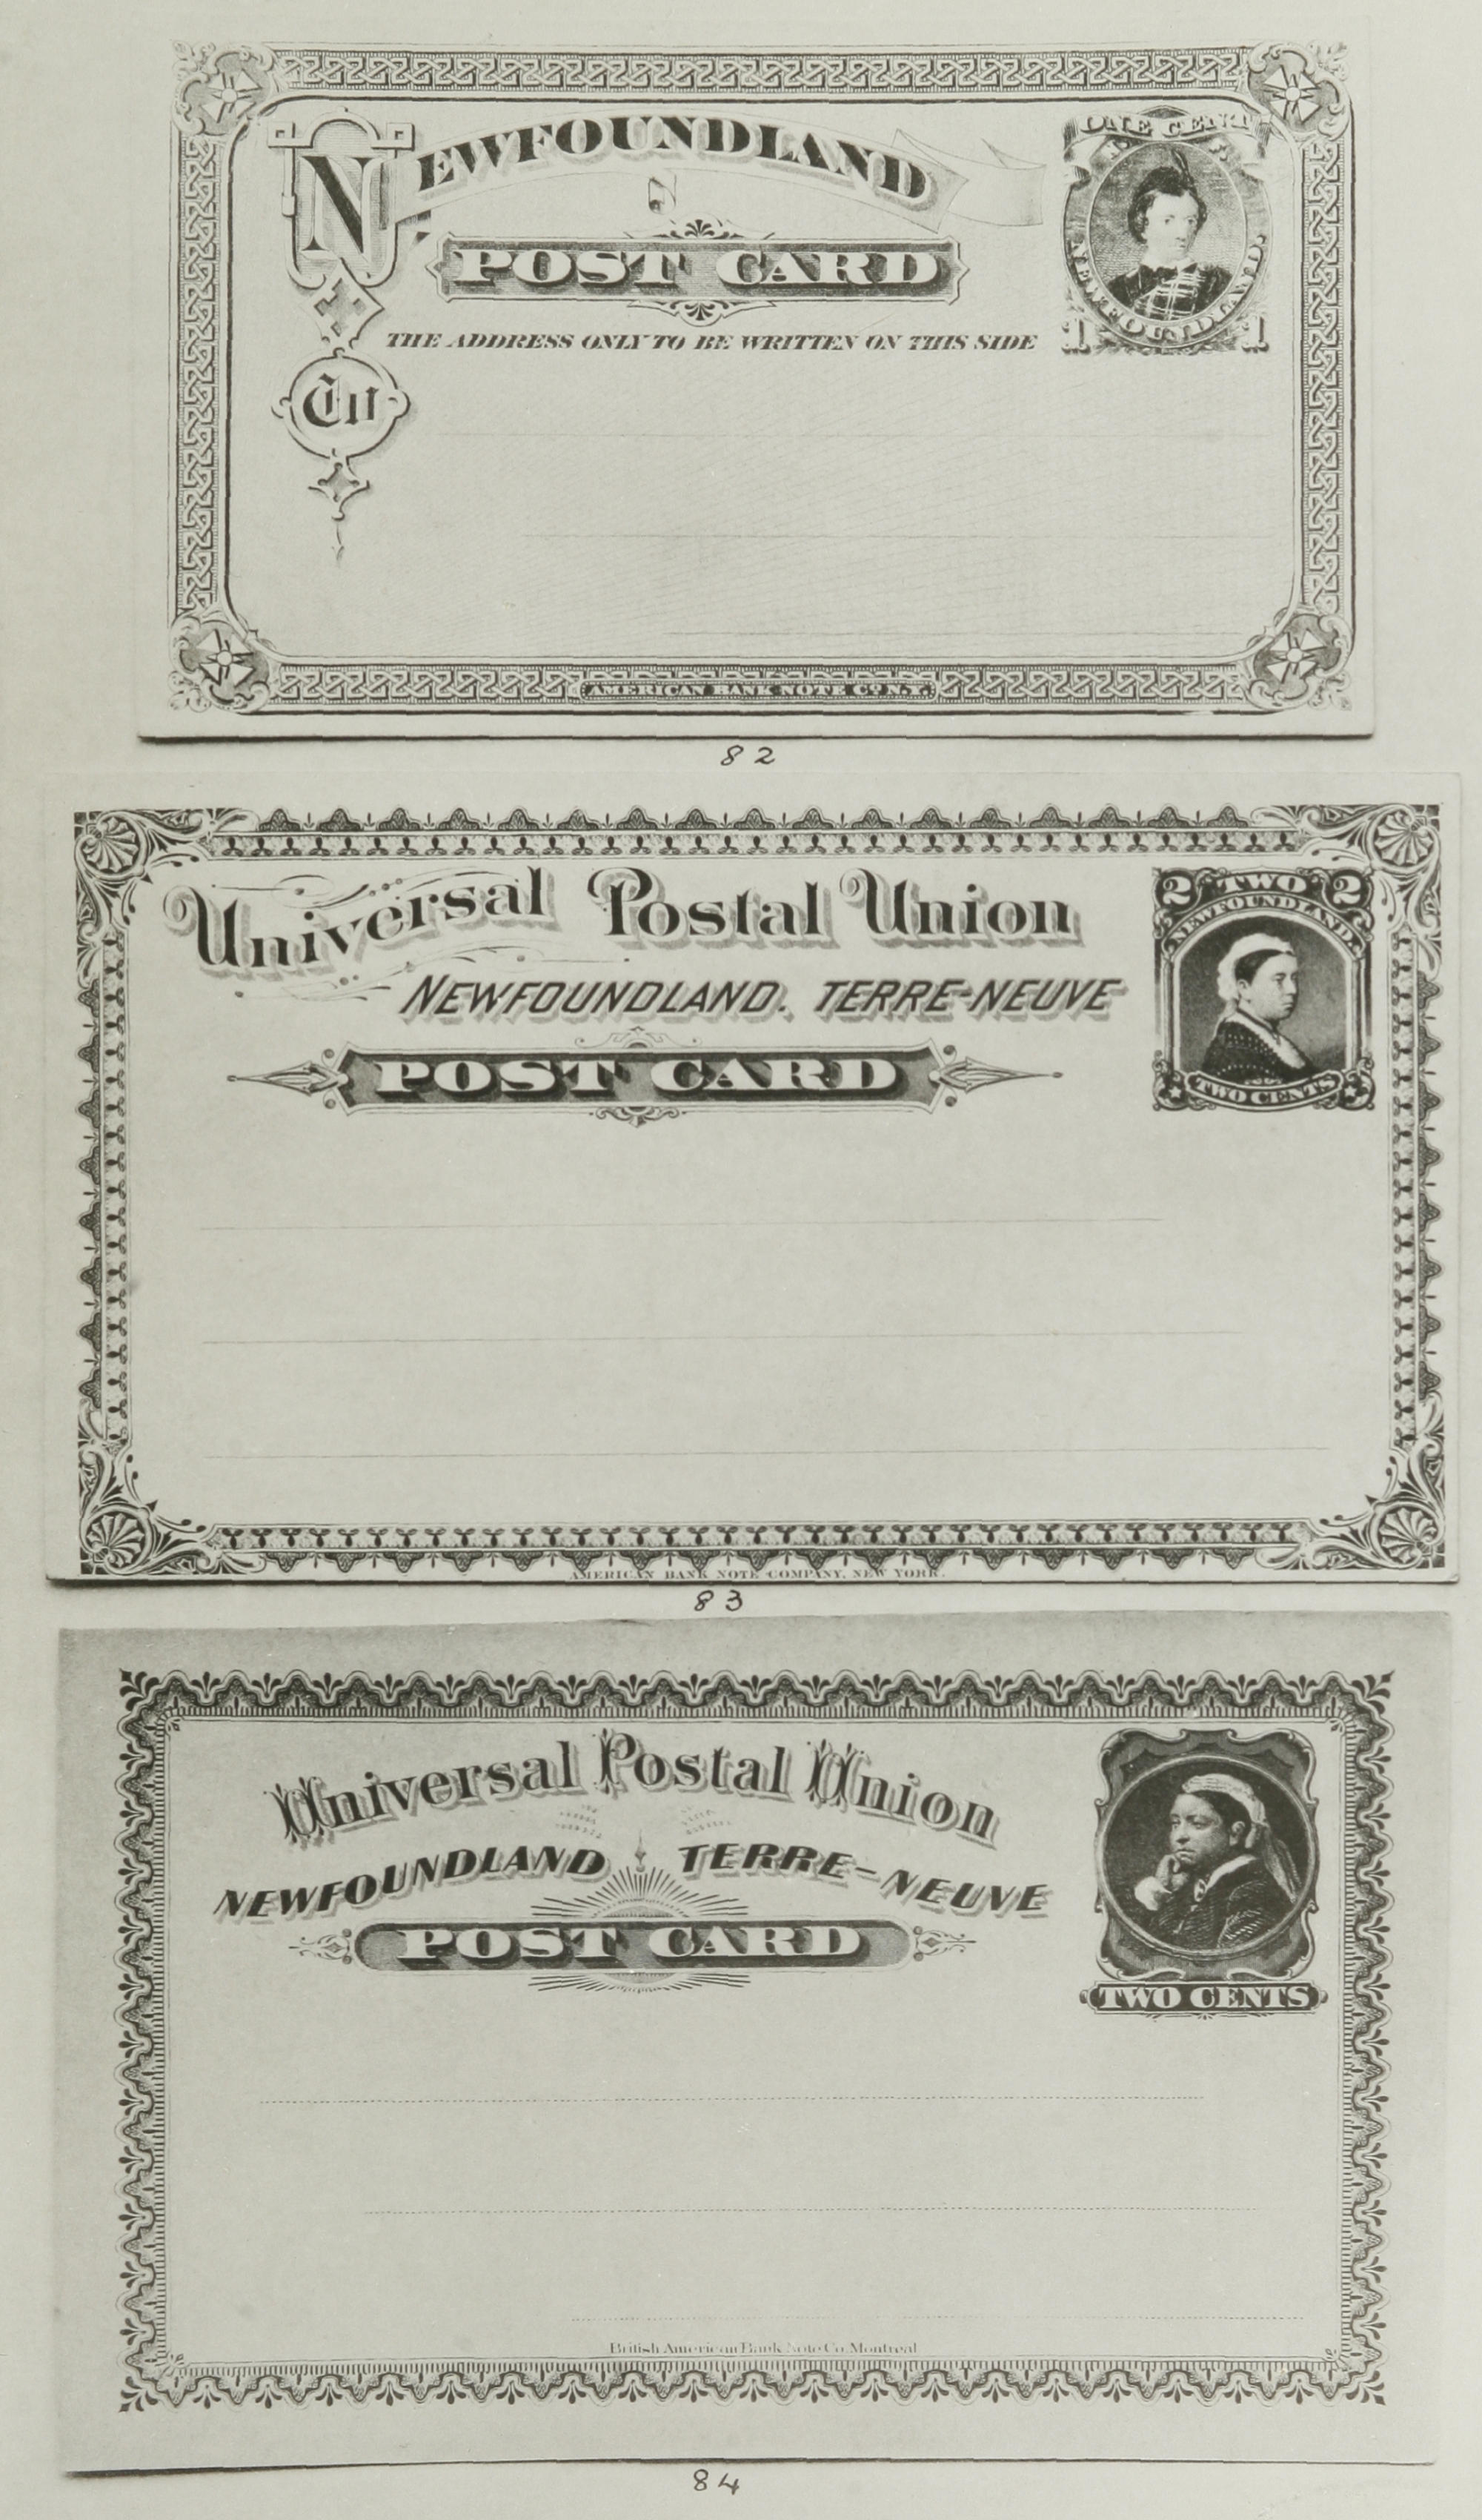 NEWFOUNDLAND
POST CARD
THE ADDRESS ONLY TO BE WRITTEN ON THIS SIDE
To
ONE CENT
NEWFOUNDLAND.
1 1
AMERICAN BANK NOTE CO. N.Y.
82
Universal Postal Union
NEWFOUNDLAND. TERRE-NEUVE
POST CARD
2 TWO 2
NEWFOUNDLAND.
TWO CENTS
AMERICAN BANK NOTE COMPANY, NEW YORK.
83
Universal Postal Union
NEWFOUNDLAND TERRE-NEUVE
POST CARD
TWO CENTS
British American Bank Note Co. Montreal
84